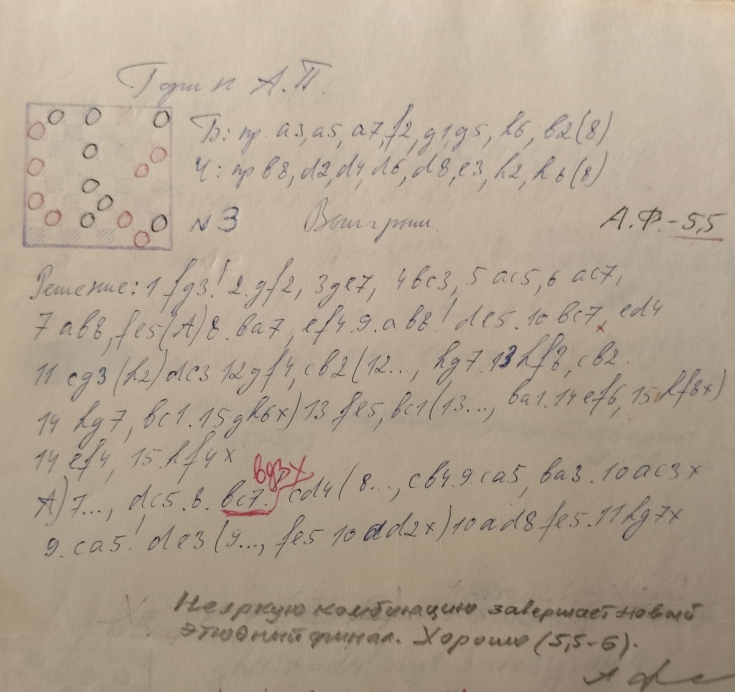 Горин А.П.
Б: пр. a3, a5, a7, f2, g1, g5, h6, b2(8)
Ч: пр b8, d2, d4, d6, d8, e3, h2, h6(8)
N 3 Выигрыш. А.Ф.-5,5
Решение: 1 fg3! 2. gf2, 3ge7, 4bc3, 5 ac5, 6 ac7,
7 ab8, fe5(A) 8. ba7, ef4. 9. ab8! de5. 10 bc7, ed4
11 cg3 (h2) dc3 12gf4, cb2 (12..., hg7. 13hf8, cb2.
14 hg7, bc1. 15gh6x) 13 fe5, bc1 (13..., ba1. 14 ef6, 15hf8x)
14 ef4, 15. hf4x
bg3x
A) 7..., dc5. 8. bc7. cd4 (8..., cb4. 9. ca5, ba3. 10 ac3x
9. ca5! de3 (9..., fe5 10 ad2x) 10 ad8 fe5. 11hg7x
Неяркую комбинацию завершает новый
этюдный финал. Хорошо (5,5-6).